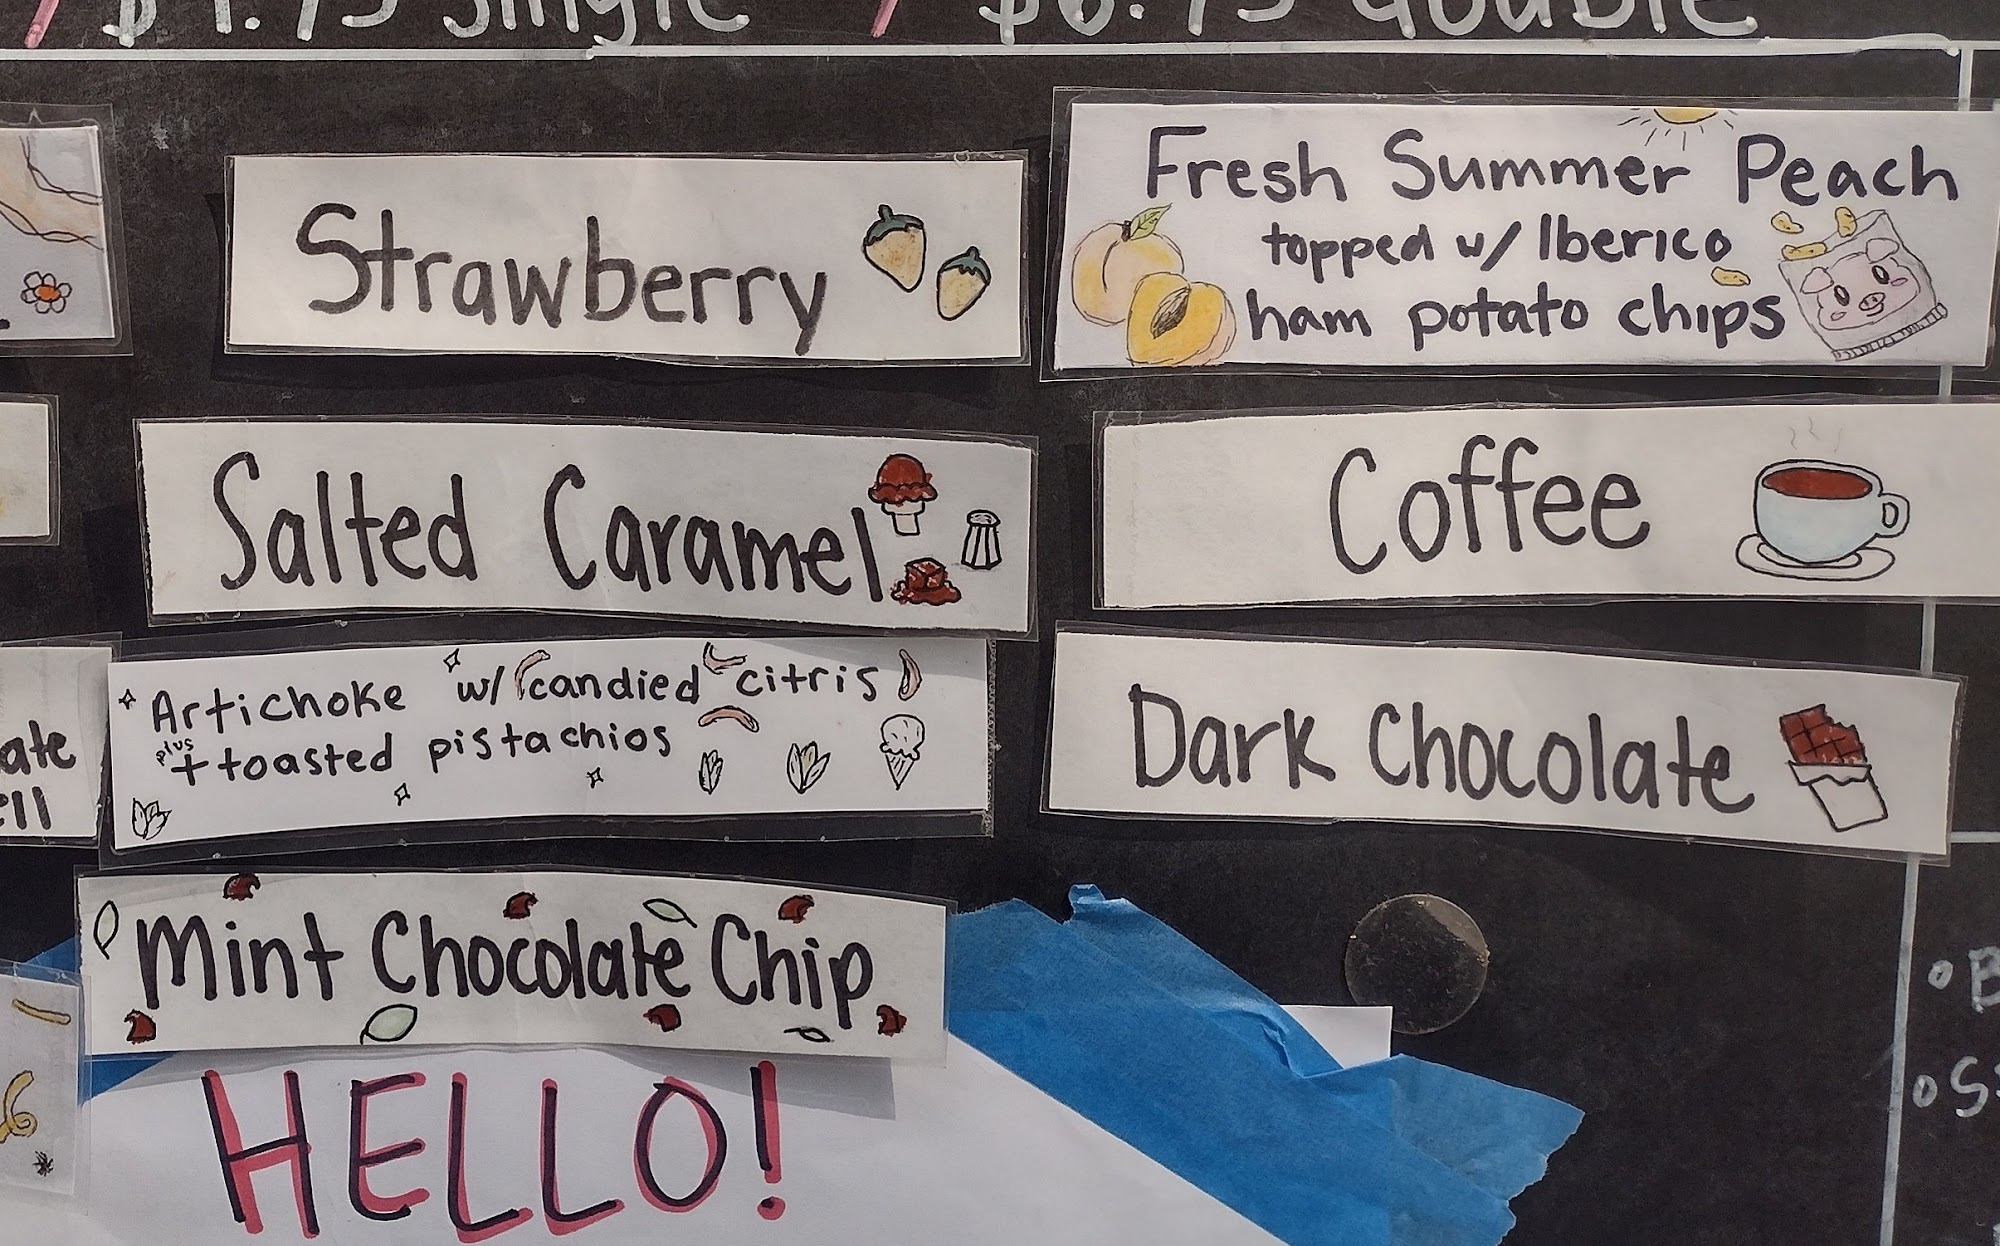 single / double
Strawberry
Salted Caramel
Artichoke w/ candied citris
plus + toasted pistachios
Mint Chocolate Chip
HELLO!
Fresh Summer Peach
topped w/ Iberico
ham potato chips
Coffee
Dark Chocolate